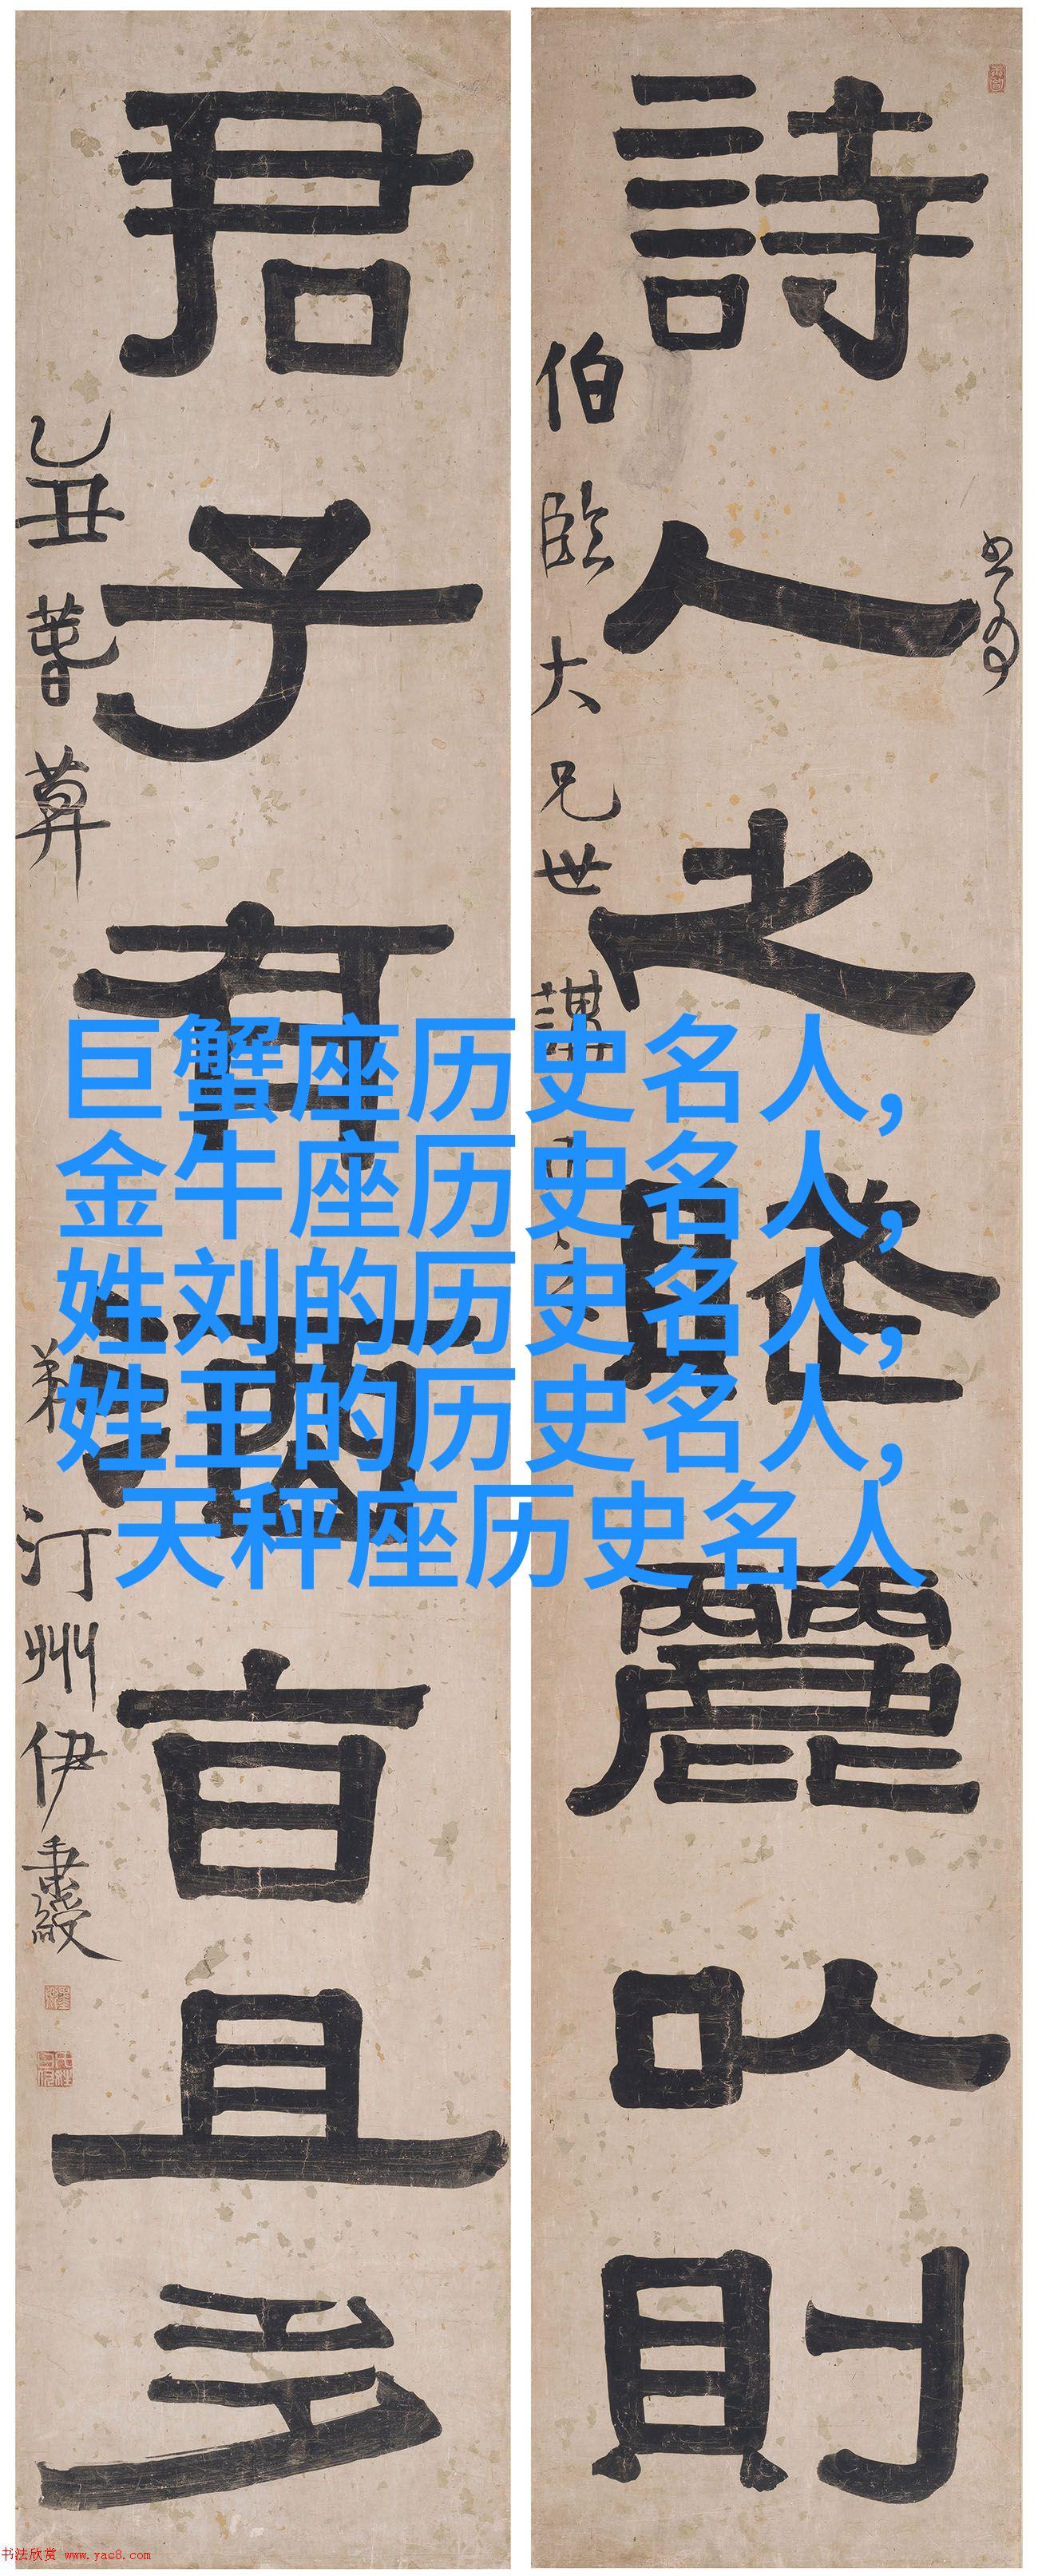 詩人之賦麗㕥則
伯臨大兄世講
君子有酒旨且多
乙丑
汀州伊秉綬
巨蟹座历史名人,
金牛座历史名人,
姓刘的历史名人,
姓王的历史名人,
天秤座历史名人
书法欣赏 www.yac8.com